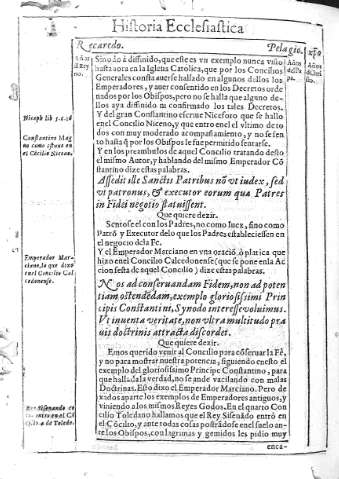 Historia Ecclesiastica
Recaredo.
Pelagio.
Sino ão à diffinido, que este es vn exemplo nunca visto
hasta aora en la Iglesia Catolica, que por los Concilios
Generales consta auerse hallado en algunos dellos los
Emperadores, y auer consentido en los Decretos orde
nados por los Obispos, pero no se halla que alguno de-
llos aya diffinido ni confirmado los tales Decretos.
Y del gran Constantino escriue Niceforo que se hallo
en el Concilio Niceno, y que entro en el vltimo de to
dos con muy moderado acompañamiento, y no se sen
to hasta q̃ por los Obispos le fue permitido sentarse.
Y en los preambulos de aquel Concilio tratando desto
el mismo Autor, y hablando del mismo Emperador Cõ
stantino dize estas palabras.
Assedit ille Sanctis Patribus nõ vt iudex, sed
vt patronus, & executor eorum quæ Patres
in Fidei negotio statuissent.
Que quiere dezir.
Sentose el con los Padres, no como Iuez, sino como
Patrõ y Executor delo que los Padres estableciessen en
el negocio dela Fe.
Y el Emperador Marciano en vna oraciõ, o platica que
hizo en el Concilio Calcedonense (que se pone en la Ac
cion sesta de aquel Concilio) dize estas palabras.
Nos ad conseruandam Fidem, non ad poten
tiam ostendẽdam, exemplo gloriosissimi Prin
cipis Constantini, Synodo interesse voluimus.
Vt inuenta veritate, non vltra multitudo pra
uis doctrinis attracta discordet.
Que quiere dezir.
Emos querido venir al Concilio para cõseruar la Fè,
y no para mostrar nuestra potencia, siguiendo en esto el
exemplo del gloriosissimo Principe Constantino, para
que hallada la verdad, no se ande vacilando con malas
Doctrinas. Esto dixo el Emperador Marciano. Pero de
xados aparte los exemplos de Emperadores antiguos, y
viniendo a los mismos Reyes Godos. En el quarto Con
cilio Toledano hallamos que el Rey Sisenãdo entrò en
el Cõcilio, y ante todas cosas postrãdose en el suelo an-
te los Obispos, con lagrimas y gemidos les pidio muy
enca-
Niceph lib 8.c.16
Constantino Mag
no como estuuo en
el Cõcilio Niceno.
Emperador Mar-
ciano, lo que dixo
en el Concilio Cal
cedonense.
Rey Sisenando co
mo entro en el Cõ
cilio 4 de Toledo.